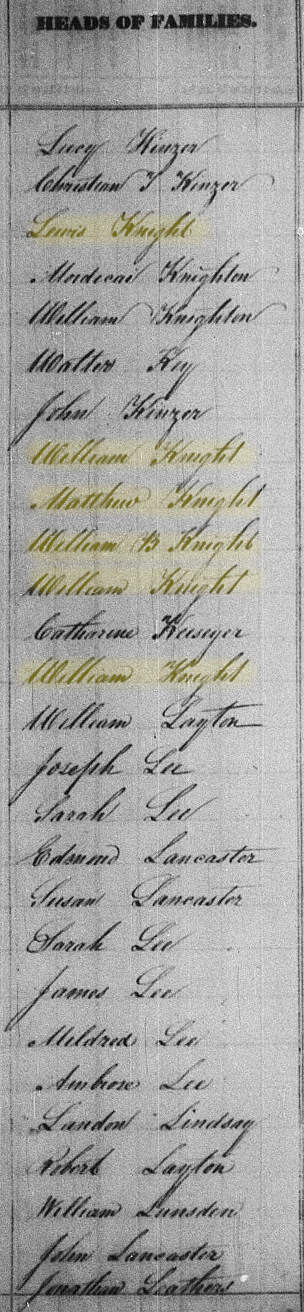 HEADS OF FAMILIES.
Lucy Kinzer
Christian T Kinzer
Lewis Knight
Mordecai Knighton
William Knighton
Walter Key
John Kinzer
William Knight
Matthew Knight
William B Knight
William Knight
Catharine Keeseyer
William Knight
William Layton
Joseph Lee
Sarah Lee
Edmond Lancaster
Susan Lancaster
Sarah Lee
James Lee
Mildred Lee
Ambrose Lee
Landon Lindsay
Robert Layton
William Lunsden
John Lancaster
Jonathan Leathers